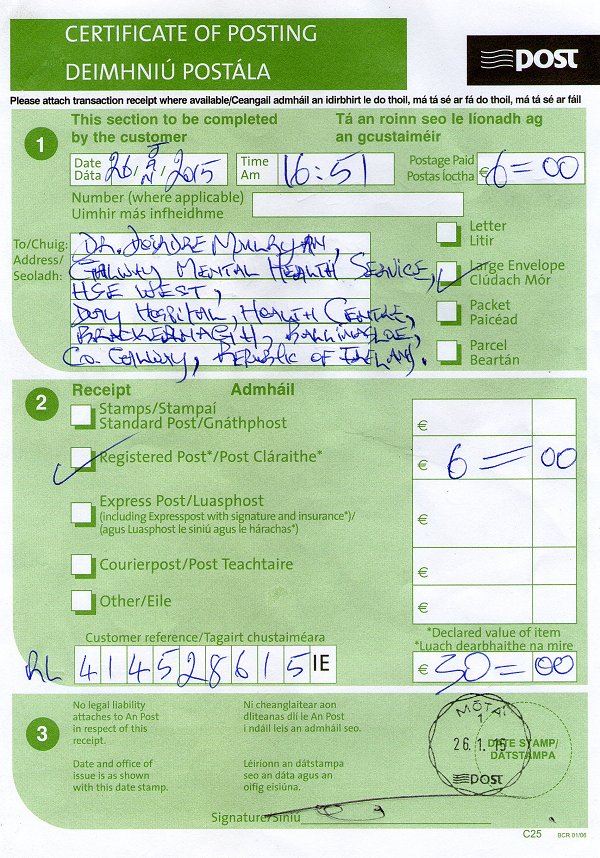 CERTIFICATE OF POSTING
DEIMHNIÚ POSTÁLA
post
Please attach transaction receipt where available/Ceangail admháil an idirbhirt le do thoil, má tá sé ar fá do thoil, má tá sé ar fáil
1
This section to be completed by the customer
Tá an roinn seo le líonadh ag an gcustaiméir
Date Dáta 26/JAN/2015
Time Am 16:51
Postage Paid Postas íoctha €6=00
Number (where applicable)
Uimhir más infheidhme
To/Chuig:
Address/
Seoladh:
DR. DEIRDRE MULRYAN,
GALWAY MENTAL HEALTH SERVICE,
HSE WEST,
DAY HOSPITAL, HEALTH CENTRE,
BRACKERNAGH, BALLINASLOE,
CO. GALWAY, REPUBLIC OF IRELAND.
Letter
Litir
Large Envelope
Clúdach Mór
Packet
Paicéad
Parcel
Beartán
2
Receipt Admháil
Stamps/Stampaí
Standard Post/Gnáthphost
€
Registered Post*/Post Cláraithe*
€ 6=00
Express Post/Luasphost
(including Expresspost with signature and insurance*)/
(agus Luasphost le siniú agus le hárachas*)
€
Courierpost/Post Teachtaire
€
Other/Eile
€
Customer reference/Tagairt chustaiméara
RL 414528615 IE
*Declared value of item
*Luach dearbhaithe na míre
€ 30=00
3
No legal liability
attaches to An Post
in respect of this
receipt.
Ní cheanglaítear aon
dliteanas dlí le An Post
i ndáil leis an admháil seo.
Date and office of
issue is as shown
with this date stamp.
Léiríonn an dátstampa
seo an dáta agus an
oifig eisiúna.
MÓTA
1
26.1.15
post
DATE STAMP/
DÁTSTAMPA
Signature/Síniú
C25 BCR 01/06